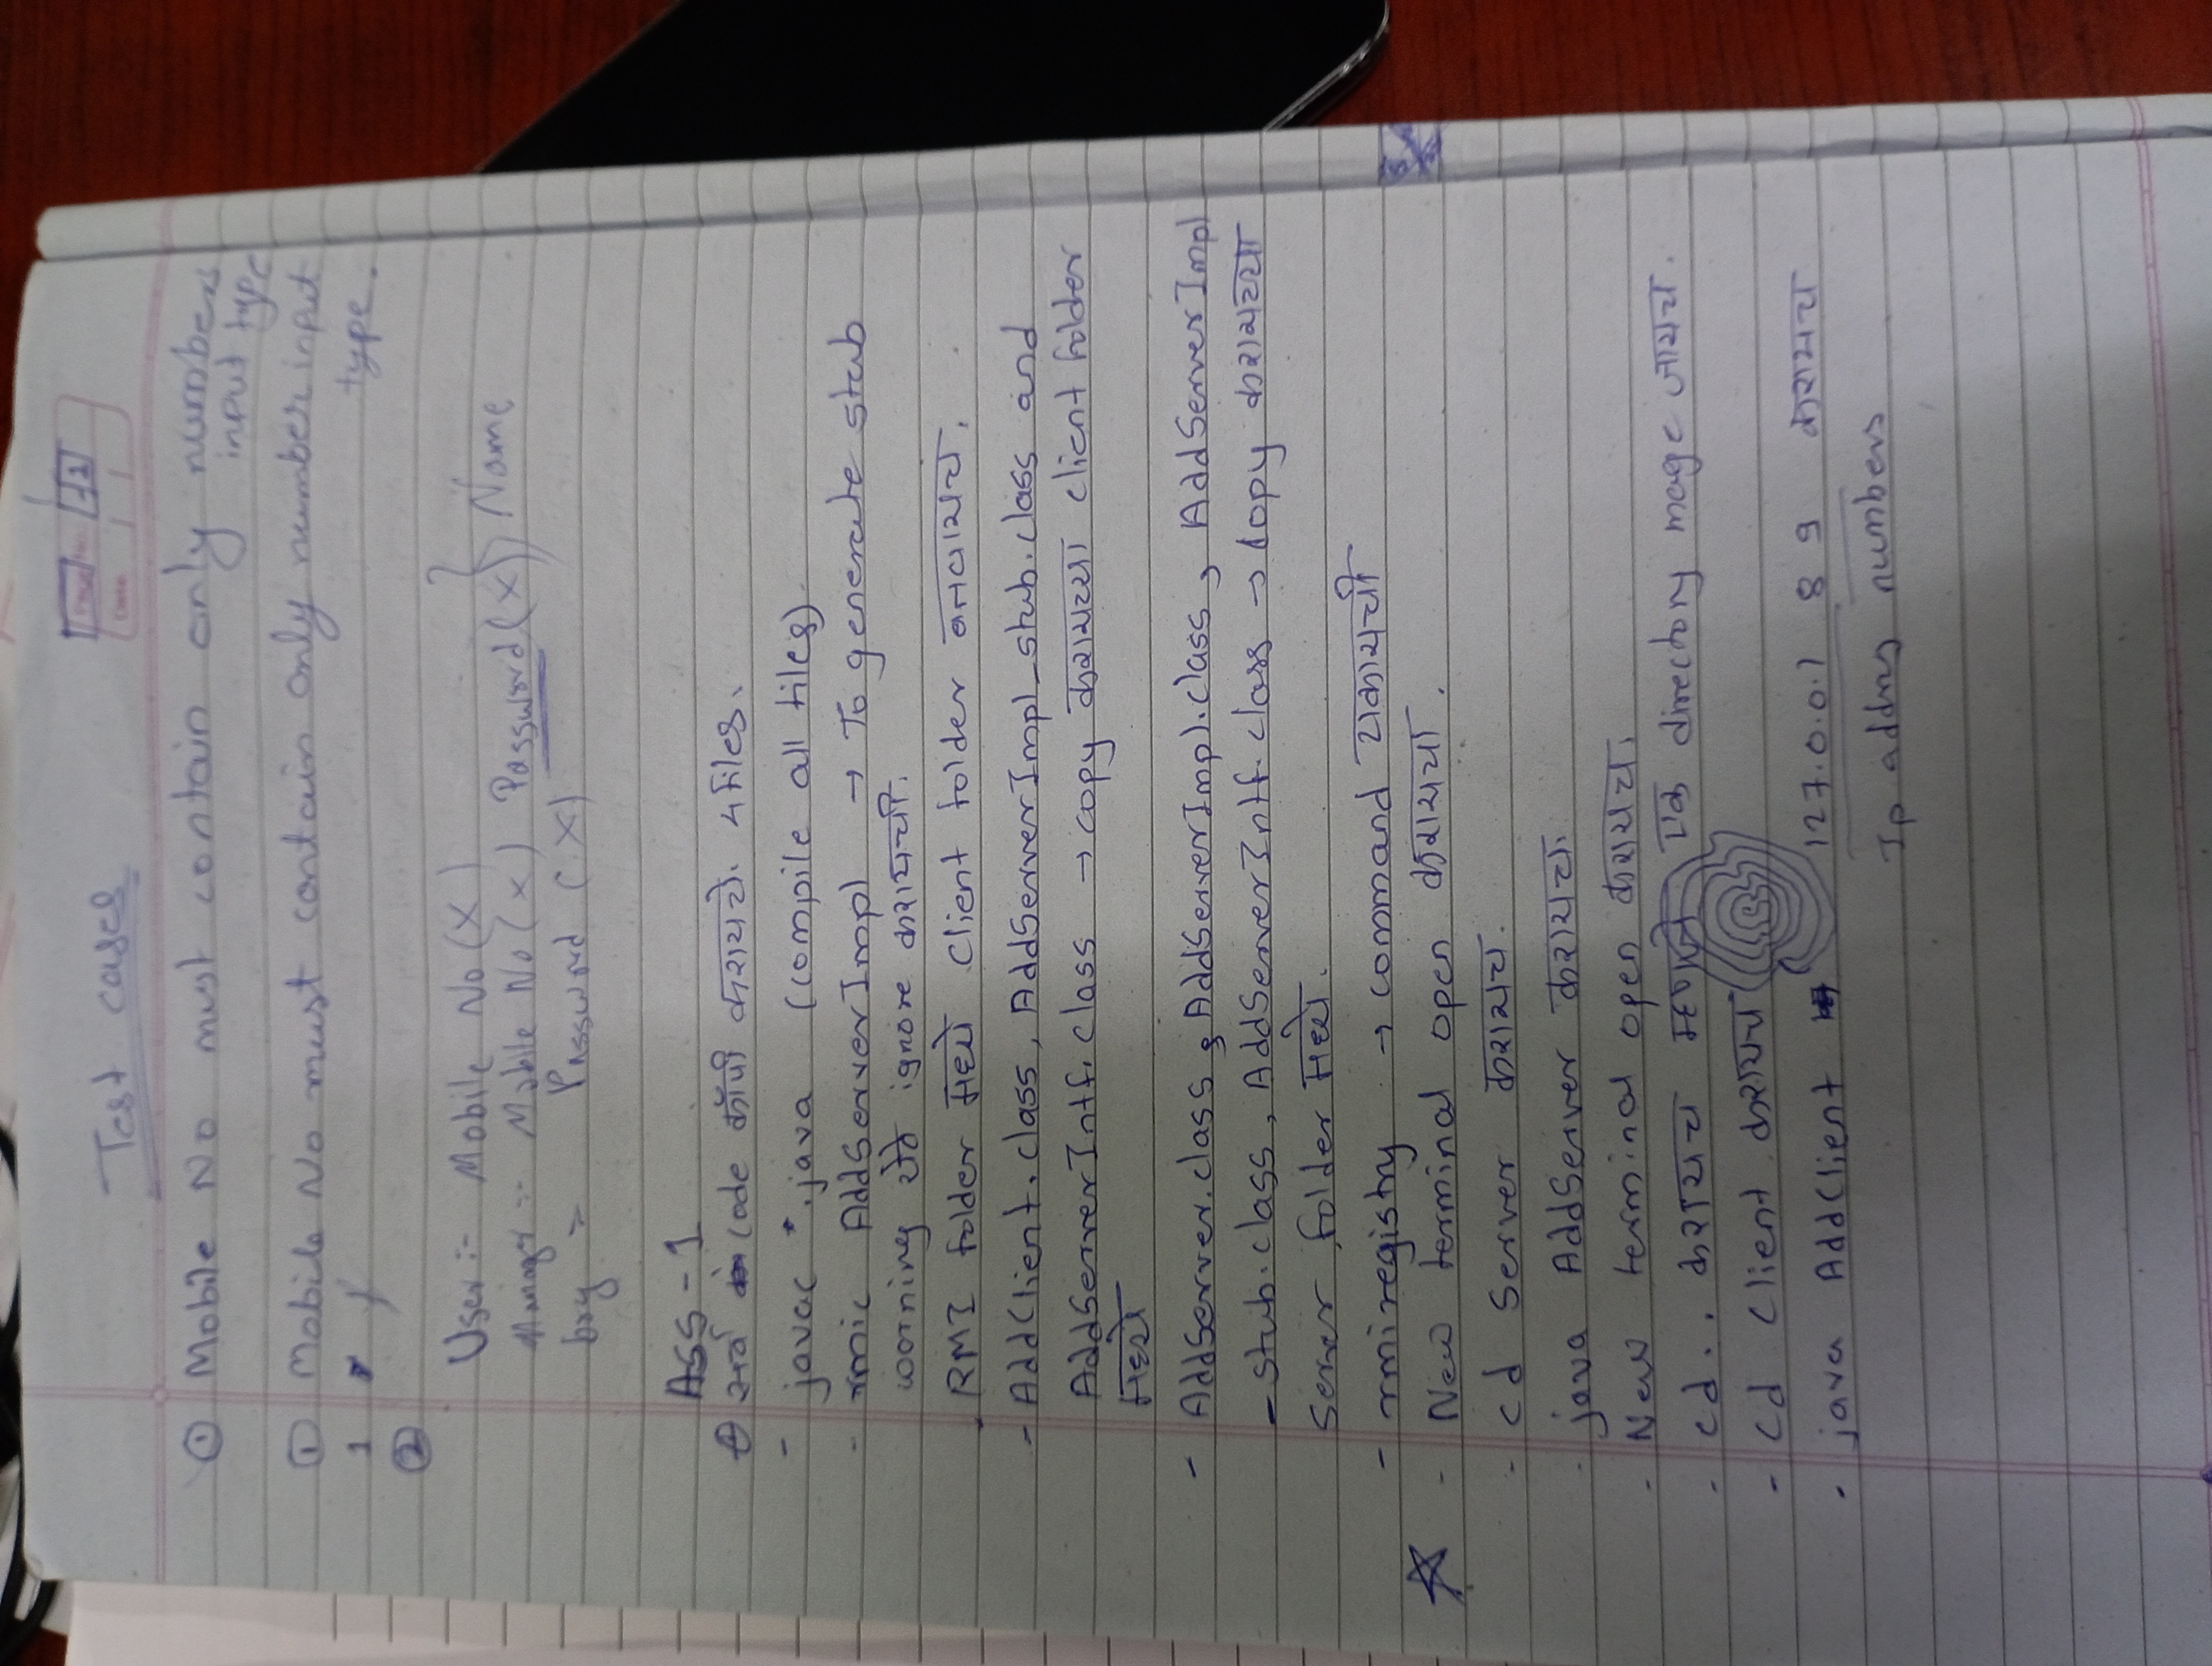 Test cases
Page No. 1
Date / /
① Mobile No must contain only numbers
input type
① Mobile No must contain only number input
1 type.
②
User :- Mobile No (X)
Manager :- Mobile No (X) Password (X) } Name
boy = Password (X)
Ass - 1
सर्व code कॉपी करायचे. 4 files.
- javac *.java (compile all files)
- rmic AddServerImpl → To generate stub
worning येते ignore करायची.
. RMI folder मध्ये Client folder बनवायच.
- AddClient.class, AddServerImpl_stub.class and
AddServerIntf.class → copy करायच्या client folder
मध्ये
- AddServer.class, AddServerImpl.class, AddServerImpl
_stub.class, AddServerIntf.class → copy करायच्या
server folder मध्ये.
- rmiregistry → command टाकायची
☆ - New terminal open करायचा.
- cd server करायच.
- java AddServer करायच.
- New terminal open करायच.
- cd .. करायच म्हणजे एक directory mage जायच.
- cd client करायच
- java AddClient 127.0.0.1 8 9 करायच
Ip addres numbers